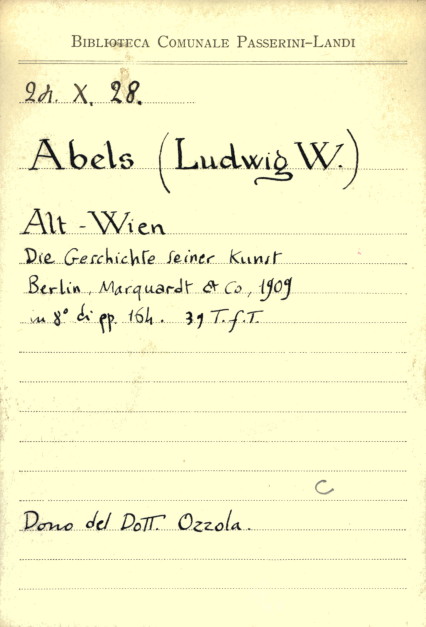 BIBLIOTECA COMUNALE PASSERINI-LANDI
X. 28.
Abels (Ludwig W.)
Alt-Wien
Die Geschichte seiner Kunst
Berlin, Marquardt & Co, 1909
in 8° di pp. 164. 39 T.f.T.
C
Dono del Dott. Ozzola.